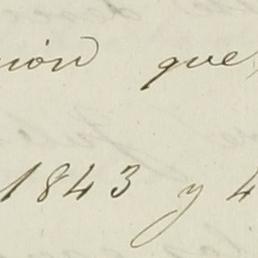 nión que
1843 y 4